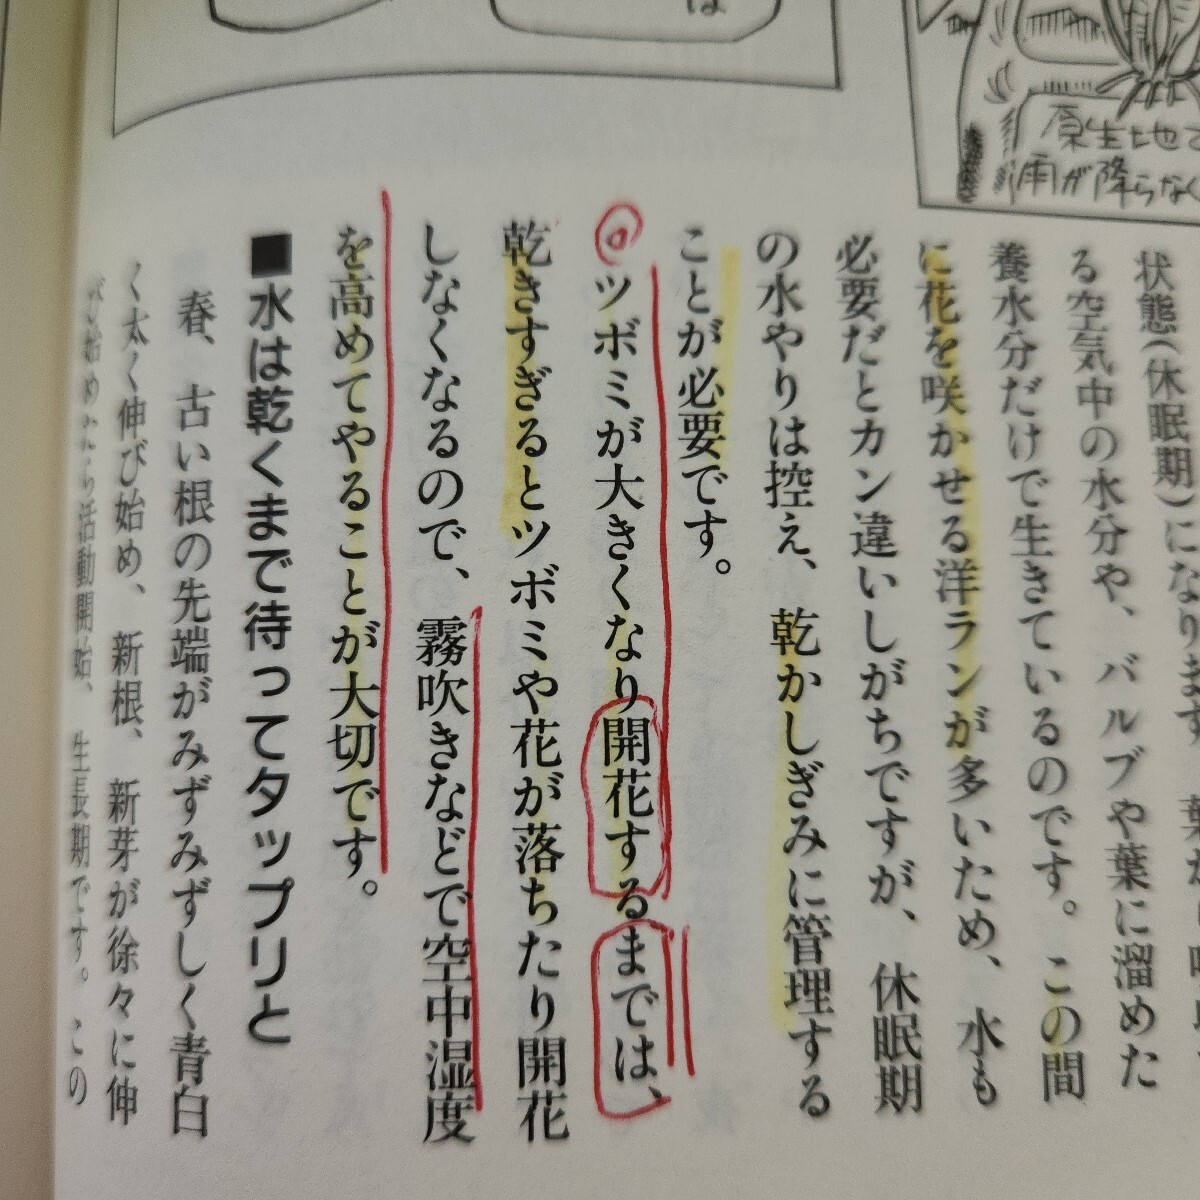 は
原生地で
雨が降らなく
状態(休眠期)になります
る空気中の水分や、バルブや葉に溜めた
養水分だけで生きているのです。この間
に花を咲かせる洋ランが多いため、水も
必要だとカン違いしがちですが、休眠期
の水やりは控え、乾かしぎみに管理する
ことが必要です。
ツボミが大きくなり開花するまでは、
乾きすぎるとツボミや花が落ちたり開花
しなくなるので、霧吹きなどで空中湿度
を高めてやることが大切です。
■水は乾くまで待ってタップリと
春、古い根の先端がみずみずしく青白
く太く伸び始め、新根、新芽が徐々に伸
び始めたら活動開始、生長期です。この